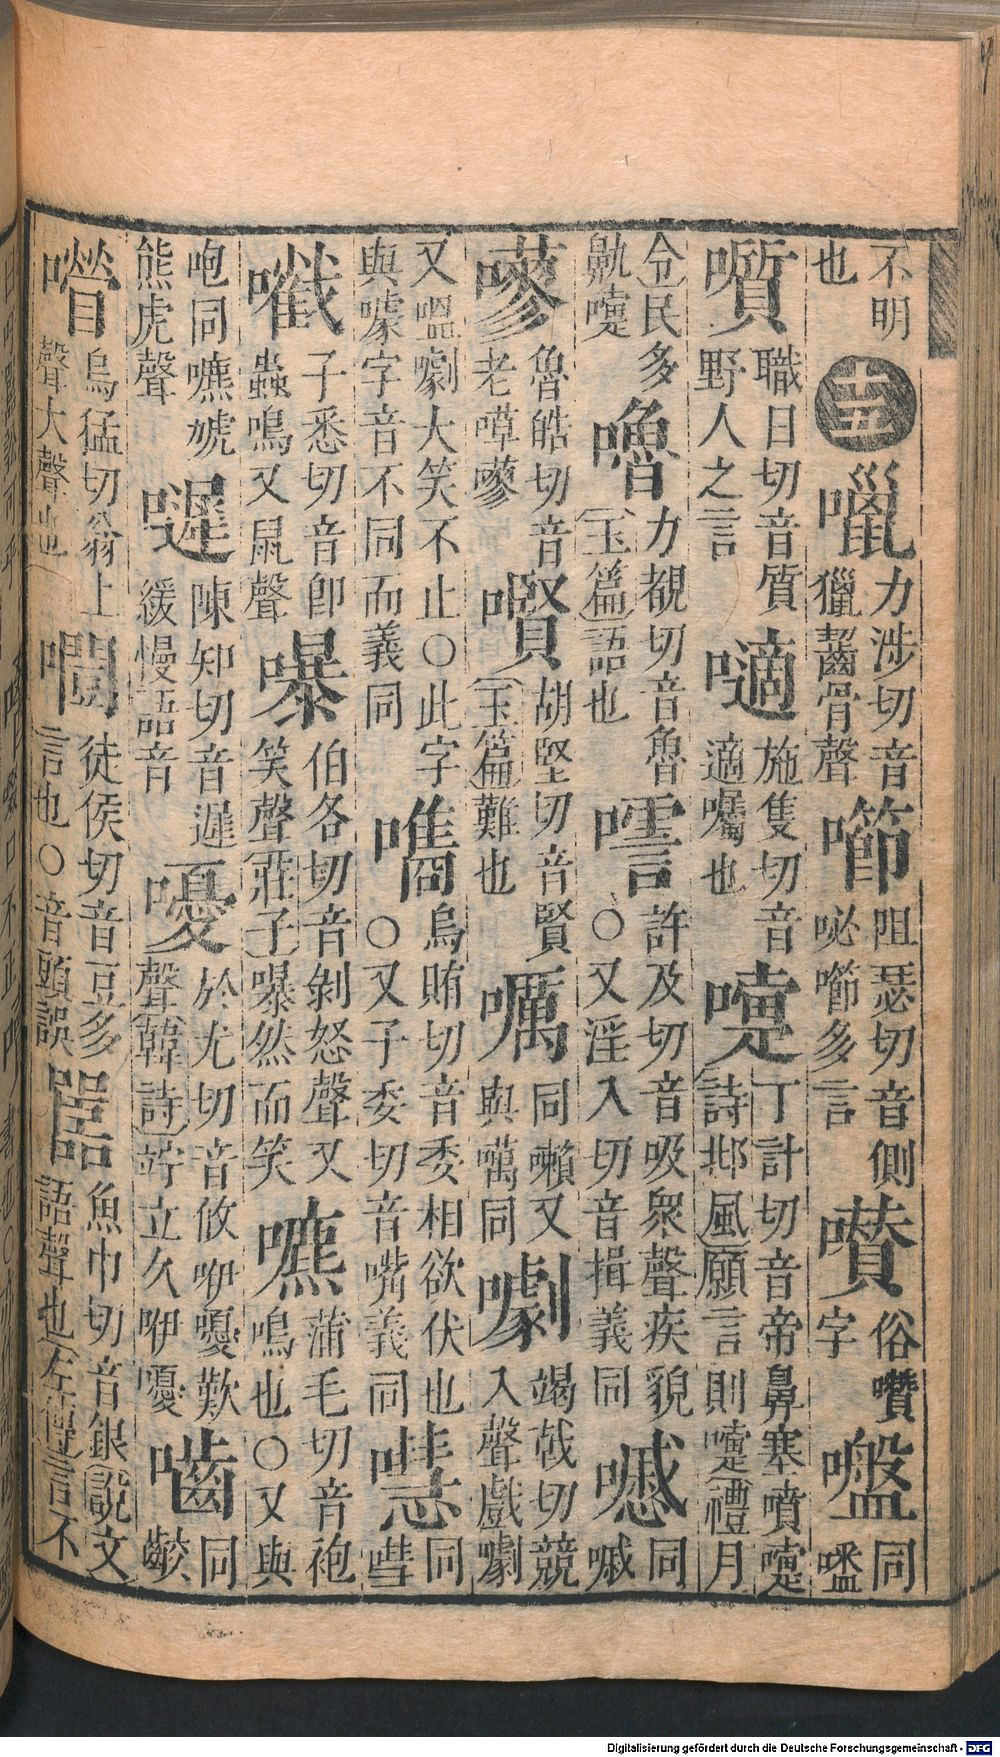 不明也 十五 㘔 力涉切音獵齧骨聲 㘉 阻瑟切音側咇㘉多言 囋 俗囋字 㘐 同嚂
噴 職日切音質野人之言 嘀 施隻切音適囑也 嚏 丁計切音帝鼻塞噴嚏詩邶風願言則嚏禮月
令民多鼽嚏 嚕 力覩切音魯玉篇語也 噾 許及切音吸衆聲疾貌○又淫入切音揖義同 慼 同嘁
魯皓切音老 胡堅切音賢玉篇難也 囇 同嚹又與囆同 噱 竭戟切競入聲戲噱
又嗢噱大笑不止○此字與噱字音不同而義同 烏賄切音委相欲伏也○又子委切音嘴義同 嘒 同嘒
子悉切音卽蟲鳴又鼠聲 嚗 伯各切音剝怒聲又笑聲莊子嚗然而笑 嚵 蒲毛切音袍鳴也○又與
咆同嚵唬熊虎聲 嚁 陳知切音遲緩慢語音 嚘 於尤切音攸咿嚘歎聲韓詩竚立久咿嚘 嚙 同齩
烏猛切翁上聲大聲也 徒侯切音豆多言也○音頭誤 嚚 魚巾切音銀說文語聲也左傳言不
Digitalisierung gefördert durch die Deutsche Forschungsgemeinschaft - DFG